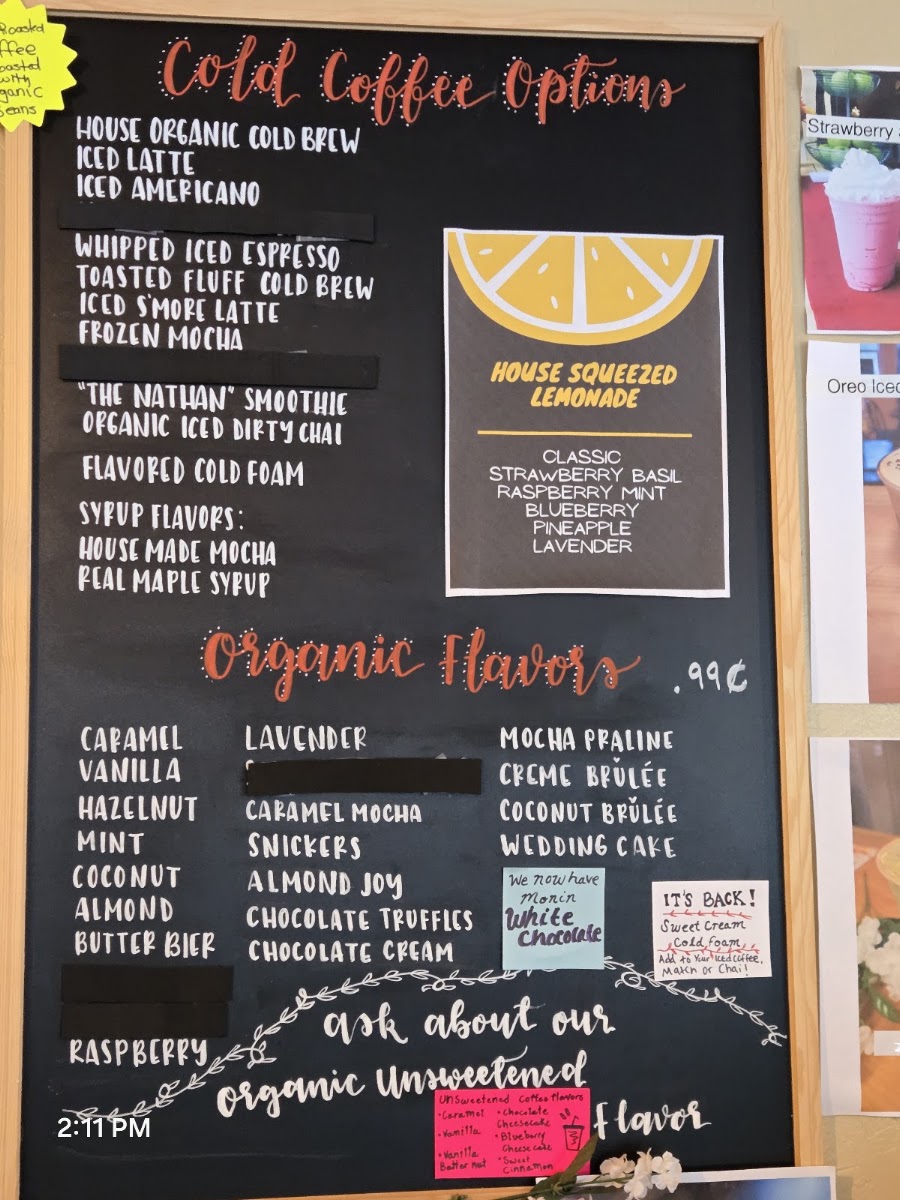 Roasted
ffee
oasted
with
ganic
eans
Cold Coffee Options
HOUSE ORGANIC COLD BREW
ICED LATTE
ICED AMERICANO
WHIPPED ICED ESPRESSO
TOASTED FLUFF COLD BREW
ICED S'MORE LATTE
FROZEN MOCHA
"THE NATHAN" SMOOTHIE
ORGANIC ICED DIRTY CHAI
FLAVORED COLD FOAM
SYRUP FLAVORS:
HOUSE MADE MOCHA
REAL MAPLE SYRUP
HOUSE SQUEEZED
LEMONADE
CLASSIC
STRAWBERRY BASIL
RASPBERRY MINT
BLUEBERRY
PINEAPPLE
LAVENDER
Strawberry
Oreo Iced
Organic Flavors
.99¢
CARAMEL
VANILLA
HAZELNUT
MINT
COCONUT
ALMOND
BUTTER BIER
RASPBERRY
LAVENDER
CARAMEL MOCHA
SNICKERS
ALMOND JOY
CHOCOLATE TRUFFLES
CHOCOLATE CREAM
MOCHA PRALINE
CREME BRŬLÉE
COCONUT BRŬLÉE
WEDDING CAKE
We now have
Monin
White
Chocolate
IT'S BACK!
Sweet Cream
Cold Foam
Add to Your Iced Coffee,
Match or Chai!
ask about our
organic Unsweetened
Flavor
UnSweetened Coffee Flavors
•Caramel
•Vanilla
•Vanilla
Butter nut
•Chocolate
Cheesecake
•Blueberry
Cheesecake
•Sweet
Cinnamon
2:11 PM